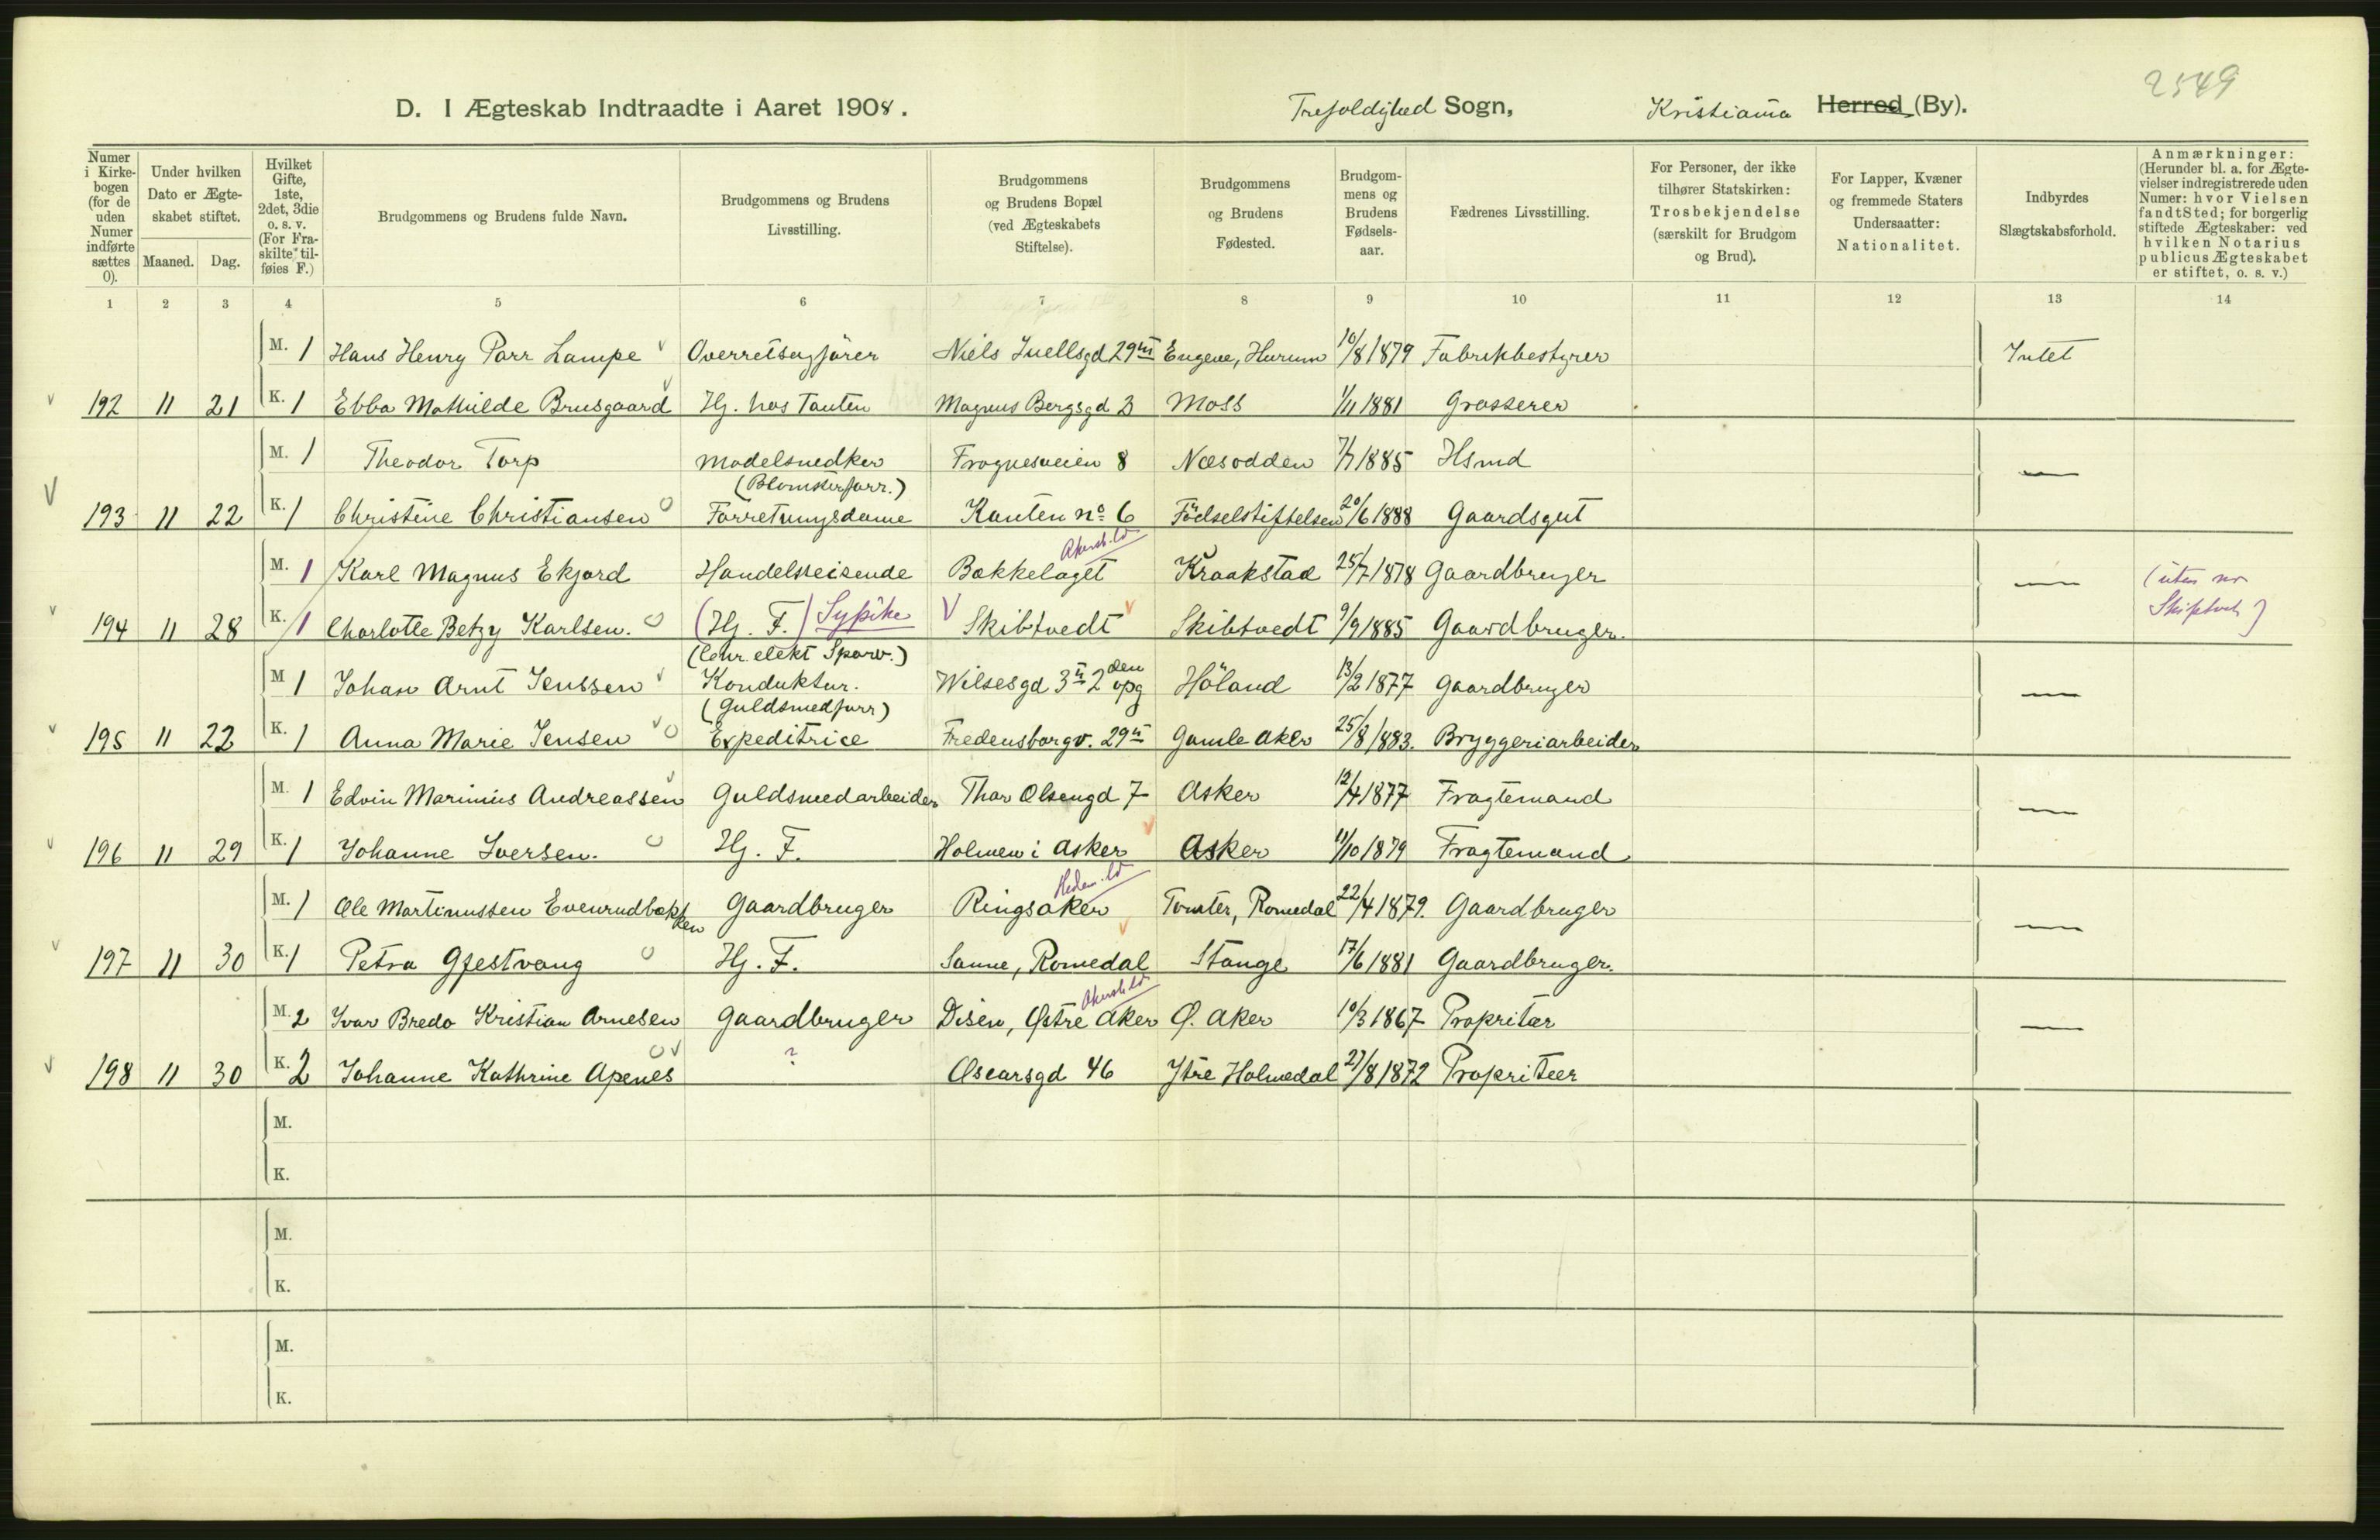 2549
D. I Ægteskab Indtraadte i Aaret 1908. Trefoldighed Sogn, Kristiania Herred (By).
Numer i Kirkebogen (for de uden Numer indførte sættes 0). Under hvilken Dato er Ægteskabet stiftet. Maaned. Dag. Hvilket Gifte, 1ste, 2det, 3die o. s. v. (For Fraskilte tilføies F.) Brudgommens og Brudens fulde Navn. Brudgommens og Brudens Livsstilling. Brudgommens og Brudens Bopæl (ved Ægteskabets Stiftelse). Brudgommens og Brudens Fødested. Brudgommens og Brudens Fødselsaar. Fædrenes Livsstilling. For Personer, der ikke tilhører Statskirken: Trosbekjendelse (særskilt for Brudgom og Brud). For Lapper, Kvæner og fremmede Staters Undersaatter: Nationalitet. Indbyrdes Slægtskabsforhold. Anmærkninger: (Herunder bl. a. for Ægtevielser indregistrerede uden Numer: hvor Vielsen fandt Sted; for borgerlig stiftede Ægteskaber: ved hvilken Notarius publicus Ægteskabet er stiftet, o. s. v.)
1 2 3 4 5 6 7 8 9 10 11 12 13 14
M. 1 Hans Henry Parr Lampe Overretssagfører Niels Juellsgd 29 III Engene, Hurum 10/8 1879 Fabrikbestyrer Intet
192 11 21 K. 1 Ebba Mathilde Brusgaard Hj. hos Tanten Magnus Bergsgd 3 Moss 1/11 1881 Grosserer
M. 1 Theodor Torp Modelsnedker Frognesveien 8 Næsodden 7/7 1885 Hsmd —
(Blomsterforr.)
193 11 22 K. 1 Christine Christiansen Forretningsdame Kanten no 6 Fødselstiftelsen 20/6 1888 Gaardsgut
Akersh.
M. 1 Karl Magnus Ekjord Handelsreisende Bækkelaget Kraakstad 25/7 1878 Gaardbruger — (uten no
194 11 28 K. 1 Charlotte Betzy Karlsen. (Hj. F.) Sypike Skibtvedt Skibtvedt 9/9 1885 Gaardbruger. Skiptvet)
(Chr. elekt Sporv.)
M 1 Johan Arnt Jenssen Konduktør. Wilsesgd 3 II 2den opg Höland 13/2 1877 Gaardbruger —
(Guldsmedforr)
195 11 22 K. 1 Anna Marie Jensen Expeditrice Fredensborgv. 29 II Gamle Aker 25/8 1883. Bryggeriarbeider
M. 1 Edvin Marinius Andreassen Guldsmedarbeider Thor Olsensgd 7 Asker 12/4 1877 Fragtemand —
196 11 29 K. 1 Johanne Iversen. Hj. F. Holmen i Asker Asker 11/10 1879 Fragtemand
Hedem.
M. 1 Ole Martinussen Evenrudbakken Gaardbruger Ringsaker Tomter, Romedal 22/4 1879. Gaardbruger —
197 11 30 K. 1 Petra Gjestvang Hj. F. Sanne, Romedal Stange 17/6 1881 Gaardbruger.
Akersh.
M. 2 Ivar Bredo Kristian Arnesen Gaardbruger Disen, Østre Aker Ø. Aker 10/3 1867 Proprietær —
198 11 30 K. 2 Johanne Kathrine Apenes ? Oscarsgd 46 Ytre Holmedal 27/8 1872 Propriteer
M.
K.
M.
K.
M.
K.